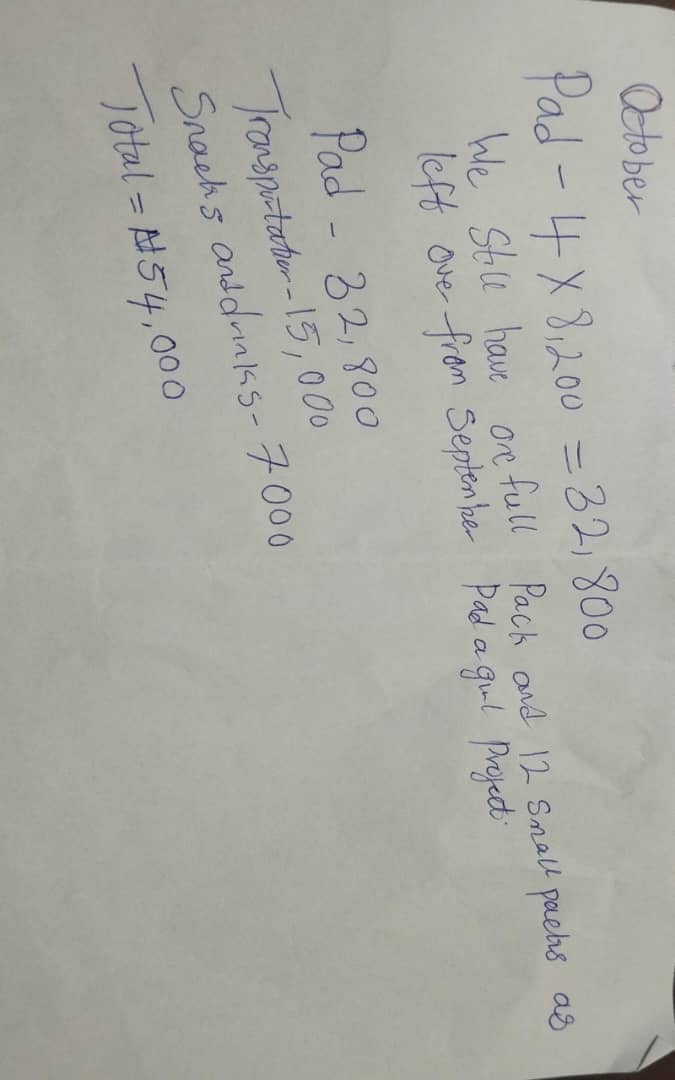 October
Pad - 4 X 8,200 = 32,800
We still have one full Pack and 12 small packs as
left over from September Pad a girl Project.
Pad - 32,800
Transportation - 15,000
Snacks and drinks - 7000
Total = ₦54,000